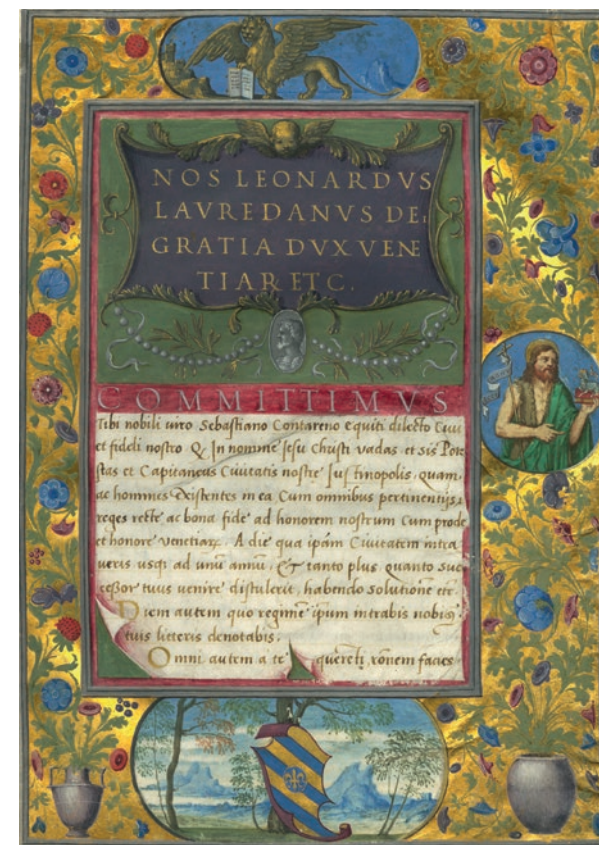 NOS LEONARDVS
LAVREDANVS DEI
GRATIA DVX VENE
TIAR ET C.
COMMITTIMVS
Tibi nobili uiro Sebastiano Contareno equiti dilecto Ciui
et fideli nostro Q. In nomine Jesu Christi vadas et sis Pote
stas et Capitaneus Ciuitatis nostre Justinopolis, quam,
ac homines existentes in ea Cum omnibus pertinentijs,
reges recte ac bona fide ad honorem nostrum Cum prode
et honore venetiaꝝ. A die qua ipãm Ciuitatem intra
veris usq; ad unũ annũ, & tanto plus quanto Suc
cessor tuus uenire distulerit, habendo solutionẽ etc.
Diem autem quo regimẽ ipũm intrabis nobis
tuis litteris denotabis.
Omni autem a te querẽti rõnem facies